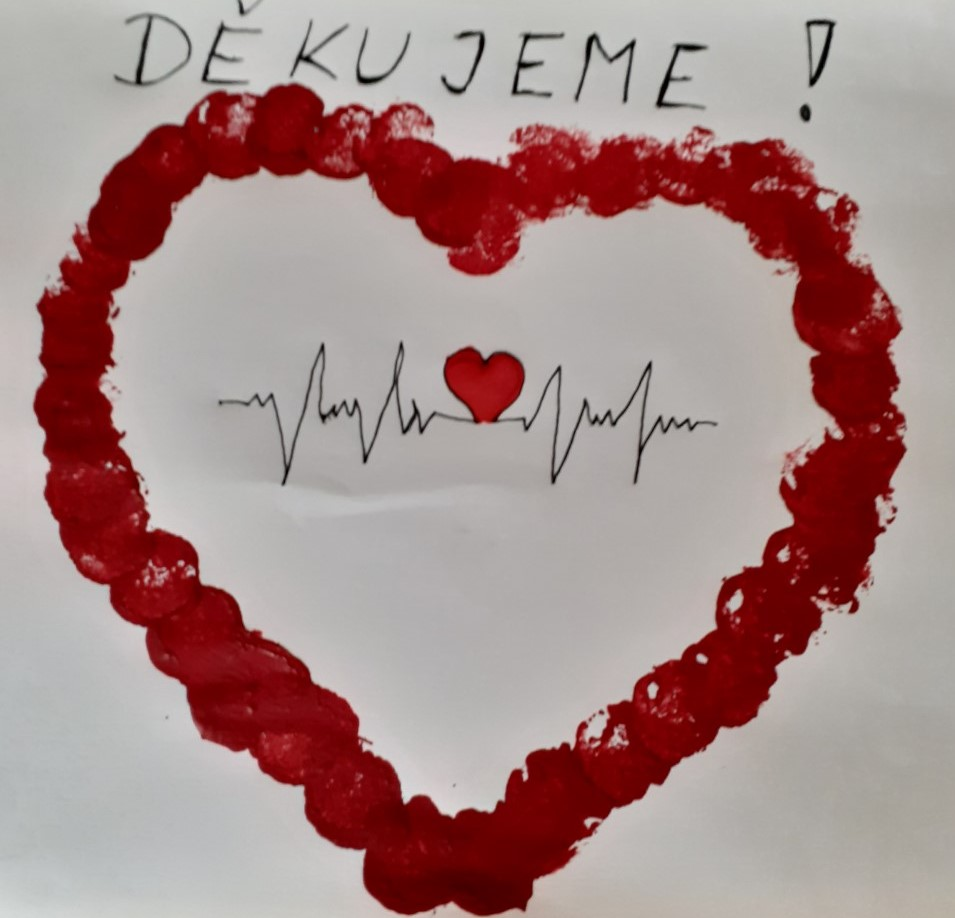 DĚKUJEME!